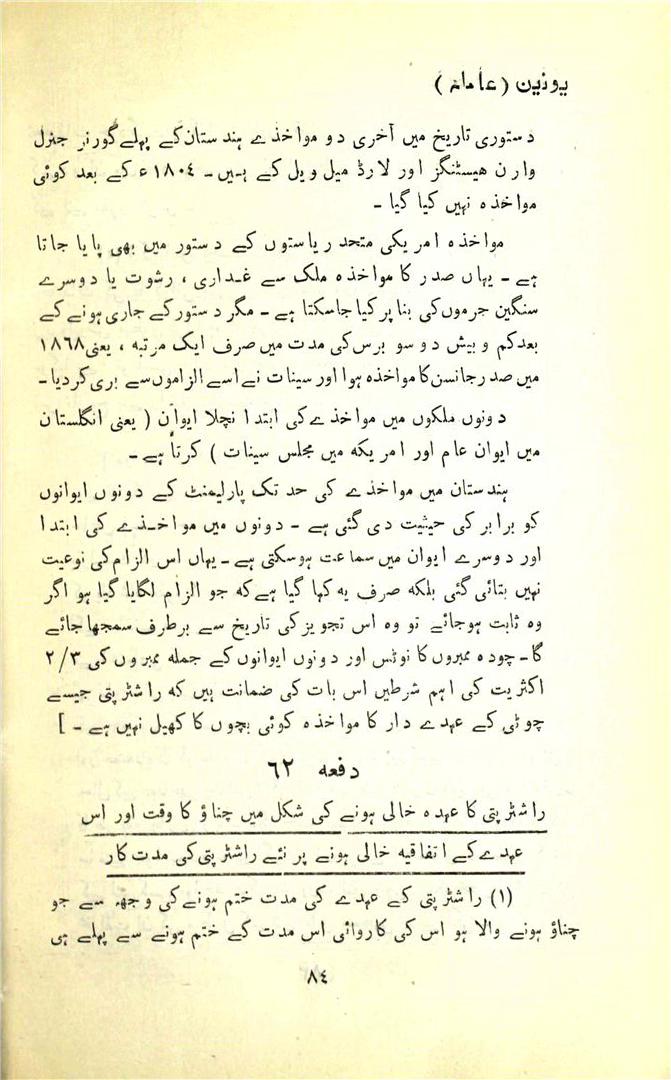 یونین (عاملہ)
دستوری تاریخ میں آخری دو مواخذے ہندستان کے پہلے گورنر جنرل
وارن ہیسٹنگز اور لارڈ میل ویل کے ہیں ۔ ۱۸۰٤ء کے بعد کوئی
مواخذہ نہیں کیا گیا ۔
مواخذہ امریکی متحد ریاستوں کے دستور میں بھی پایا جاتا
ہے ۔ یہاں صدر کا مواخذہ ملک سے غداری ، رشوت یا دوسرے
سنگین جرموں کی بنا پر کیا جاسکتا ہے ۔ مگر دستور کے جاری ہونے کے
بعد کم و بیش دو سو برس کی مدت میں صرف ایک مرتبہ ، یعنی ۱۸٦۸
میں صدر جانسن کا مواخذہ ہوا اور سینات نے اسے الزاموں سے بری کر دیا ۔
دونوں ملکوں میں مواخذے کی ابتدا نچلا ایوان ( یعنی انگلستان
میں ایوان عام اور امریکہ میں مجلس سینات ) کرتا ہے ۔
ہندستان میں مواخذے کی حد تک پارلیمنٹ کے دونوں ایوانوں
کو برابر کی حیثیت دی گئی ہے ۔ دونوں میں مواخذے کی ابتدا
اور دوسرے ایوان میں سماعت ہوسکتی ہے ۔ یہاں اس الزام کی نوعیت
نہیں بتائی گئی بلکہ صرف یہ کہا گیا ہے کہ جو الزام لگایا گیا ہو اگر
وہ ثابت ہوجائے تو وہ اس تجویز کی تاریخ سے برطرف سمجھا جائے
گا ۔ چودہ ممبروں کا نوٹس اور دونوں ایوانوں کے جملہ ممبروں کی ۲/۳
اکثریت کی اہم شرطیں اس بات کی ضمانت ہیں کہ راشٹرپتی جیسے
چوٹی کے عہدے دار کا مواخذہ کوئی بچوں کا کھیل نہیں ہے ۔ ]
دفعہ ٦۲
راشٹرپتی کا عہدہ خالی ہونے کی شکل میں چناؤ کا وقت اور اس
عہدے کے اتفاقیہ خالی ہونے پر نئے راشٹرپتی کی مدت کار
(۱) راشٹرپتی کے عہدے کی مدت ختم ہونے کی وجہ سے جو
چناؤ ہونے والا ہو اس کی کاروائی اس مدت کے ختم ہونے سے پہلے ہی
۸٤